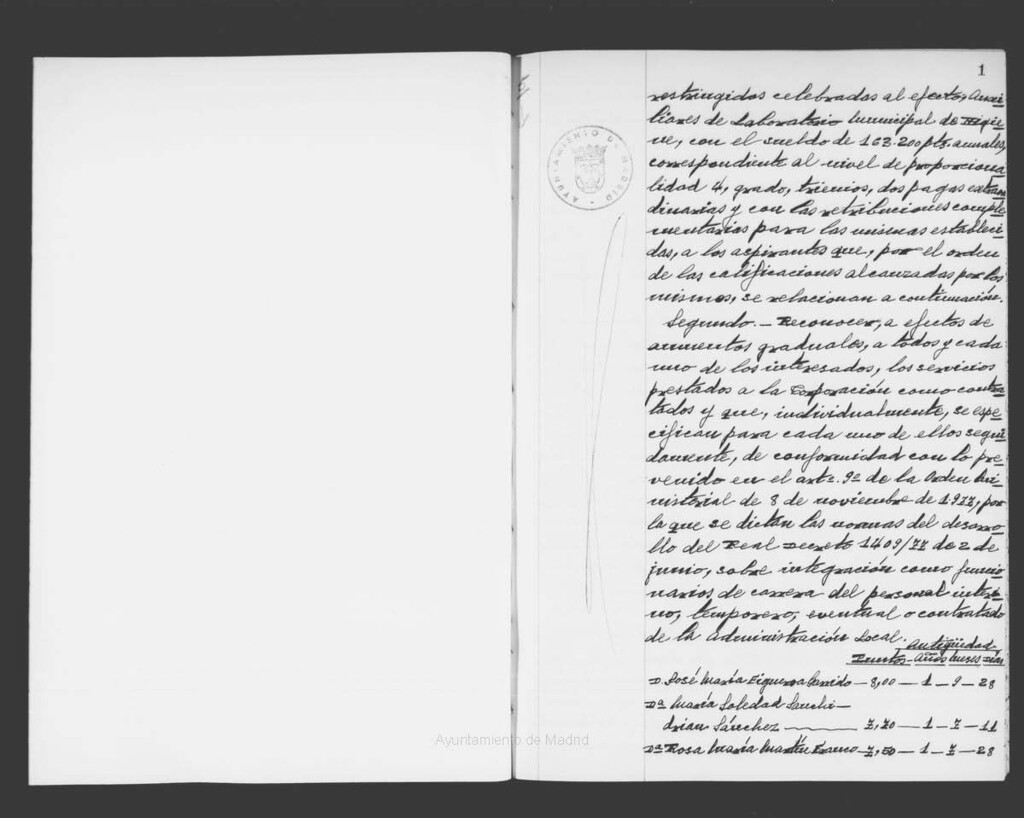 1
restringidas celebradas al efecto, Auxi
liares de Laboratorio Municipal de Higie
ne, con el sueldo de 163.200 pts. anuales,
correspondiente al nivel de proporciona
lidad 4, grado, trienios, dos pagas extraor
dinarias y con las retribuciones comple
mentarias para las mismas estableci
das, a los aspirantes que, por el orden
de las calificaciones alcanzadas por los
mismos, se relacionan a continuación.
Segundo.- Reconocer, a efectos de
aumentos graduales, a todos y cada
uno de los interesados, los servicios
prestados a la Corporación como contra
tados y que, individualmente, se espe
cifican para cada uno de ellos segui
damente, de conformidad con lo pre
venido en el artº. 9º de la Orden Mi
nisterial de 8 de noviembre de 1977, por
la que se dictan las normas del desarro
llo del Real Decreto 1409/77 de 2 de
junio, sobre integración como funcio
narios de carrera del personal interi
no, temporero, eventual o contratado
de la Administración Local.
Antigüedad
Puntos Años Meses Días
D. José María Figueroa Garrido - 8,00 - 1 - 9 - 28
Dª María Soledad Sanchi-
drian Sánchez 7,70 - 1 - 7 - 11
Dª Rosa María Martín - 7,50 - 1 - 7 - 28
AYUNTAMIENTO DE MADRID
Ayuntamiento de Madrid